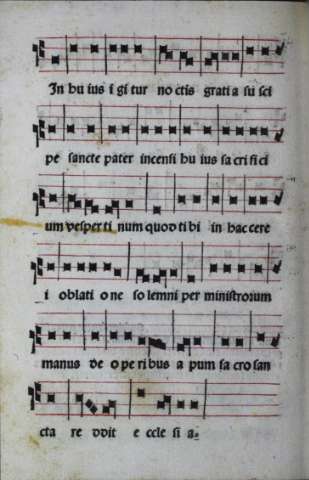 In hu ius i gi tur no ctis grati a su sci
pe sancte pater incensi hu ius sa cri fi ci
um vesper ti num quod ti bi in hac cere
i oblati o ne so lemni per ministroium
manus de o pe ri bus a pum sa cro san
cta re ddit e ccle si a.